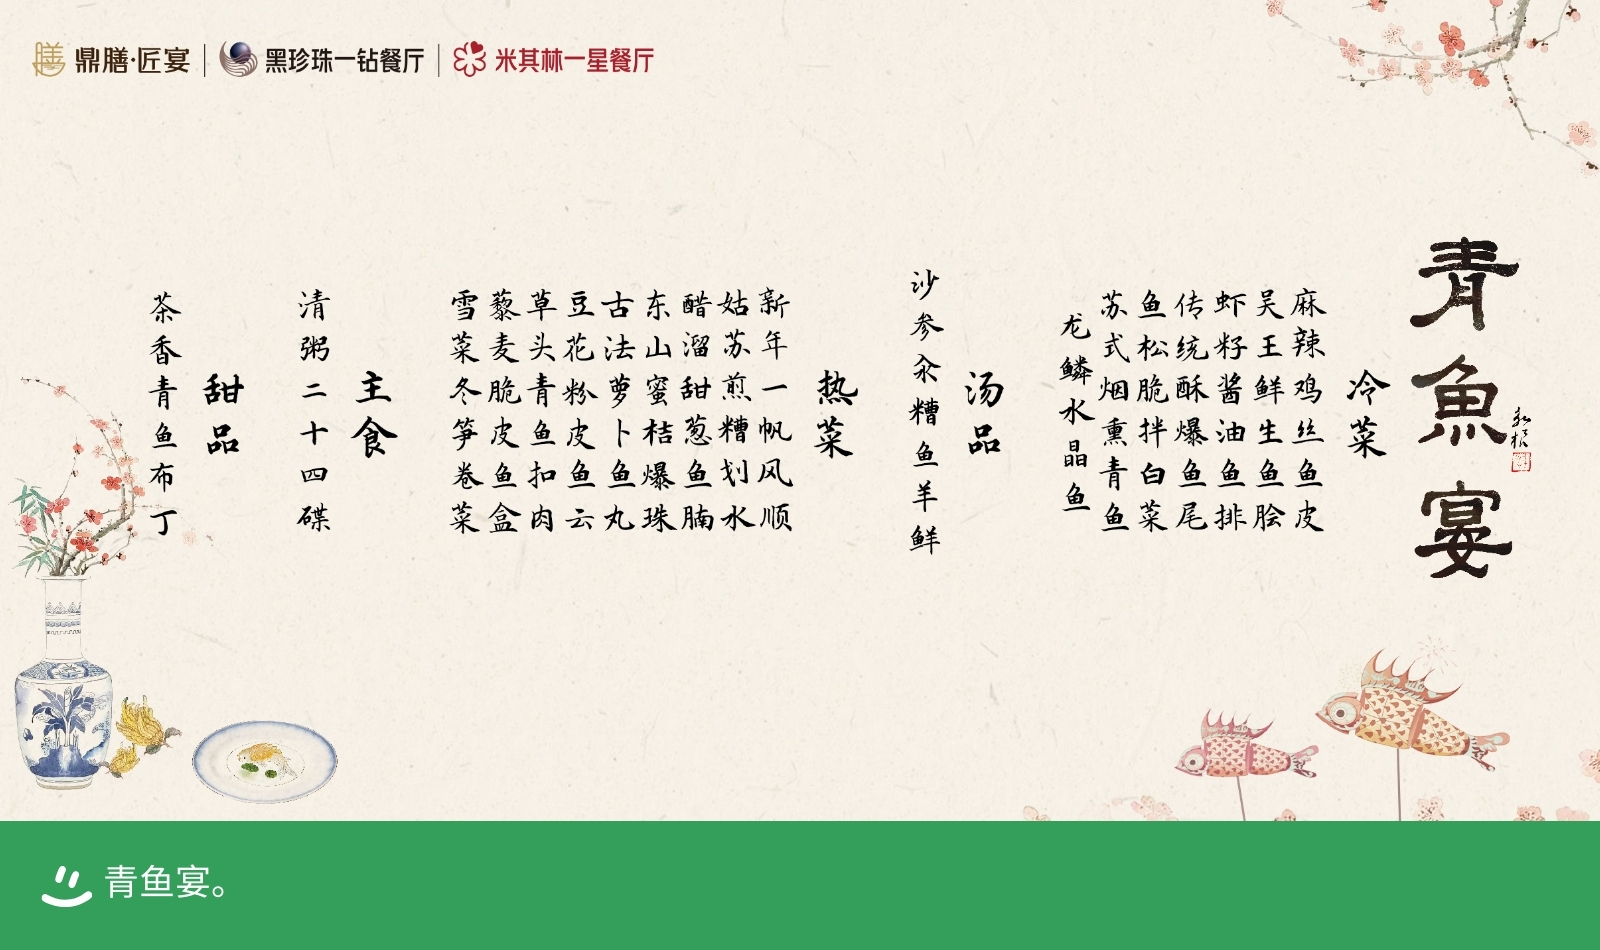 鼎膳·匠宴
黑珍珠一钻餐厅
米其林一星餐厅
青魚宴
冷菜
麻辣鸡丝鱼皮
吴王鲜生鱼脍
虾籽酱油鱼排
传统酥爆鱼尾
鱼松脆拌白菜
苏式烟熏青鱼
龙鳞水晶鱼
汤品
沙参汆糟鱼羊鲜
热菜
新年一帆风顺
姑苏煎糟划水
醋溜甜葱鱼腩
东山蜜桔爆珠
古法萝卜鱼丸
豆花粉皮鱼云
草头青鱼扣肉
藜麦脆皮鱼盒
雪菜冬笋卷菜
主食
清粥二十四碟
甜品
茶香青鱼布丁
青鱼宴。